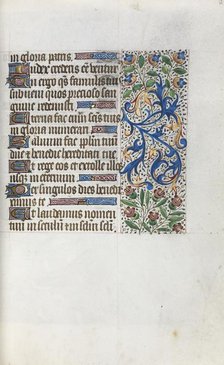 in gloria patris.
Iudex crederis eē ventur̄
Te ergo qs̄ famulis tuis
subveni quos precioso san
guine redemisti
Eterna fac cum sc̄is tuis
in gloria munerari
Saluum fac populum tuū
dn̄e et benedic hereditati tue
Et rege eos et extolle illos
usq; in eternum
Per singulos dies benedi
cimus te
Et laudamus nomen
tuū in seculū et in sc̄lm sc̄li